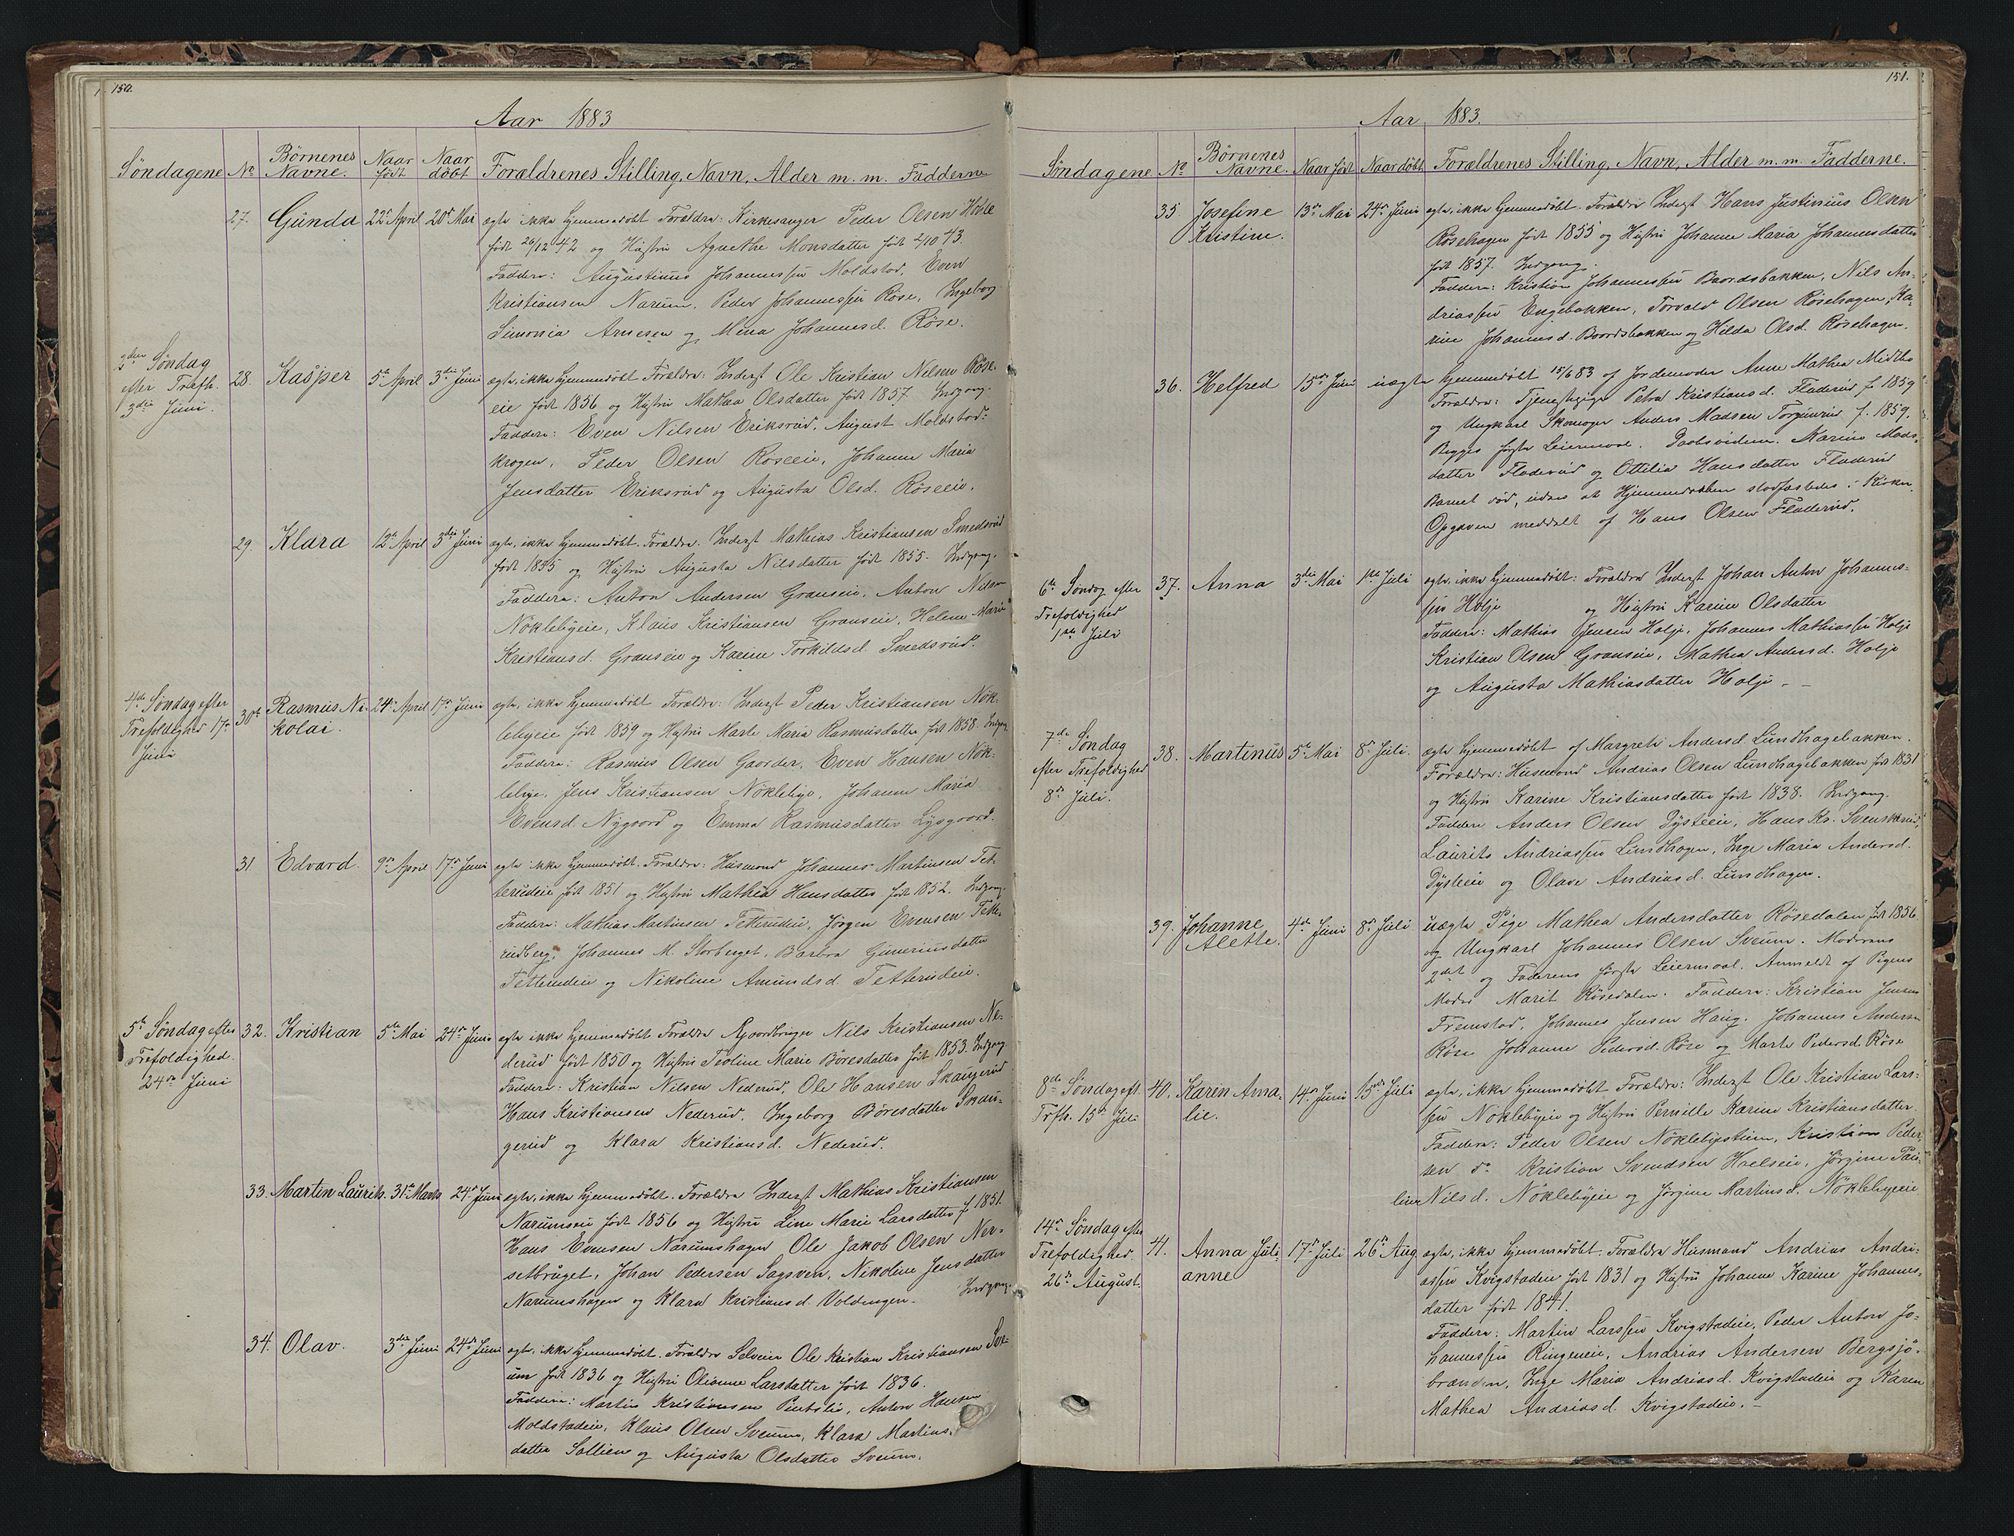 150.
Aar 1883
Søndagene No Børnenes Navne. Naar født Naar døbt Forældrenes Stilling, Navn, Alder m. m. Fadderne
27. Gunda 22de April 20de Mai ægte ikke hjemmedøbt. Forældre: Kirkesanger Peder Olsen Hole
født 20/12 42 og Hustru Agnethe Monsdatter født 2/10 43.
Faddere: Augustinus Johannessen Moldstad, Even
Kristiansen Narum, Peder Johannessen Røse, Ingeborg
Simonia Arnesen og Mina Johannesd. Røse.
2den Søndag
efter Trefh.
3die Juni.
28. Kasper 5te April 3die Juni ægte, ikke hjemmedøbt. Forældre: Inderst Ole Kristian Nilsen Røse-
eie født 1856 og Hustru Mathea Olsdatter født 1857. Indgang.
Faddere: Even Nilsen Eriksrud, August Moldstad-
krogen, Peder Olsen Røseeie, Johanne Maria
Jensdatter Eriksrud og Augusta Olsd. Røseeie.
29. Klara 12te April 3die Juni ægte, ikke hjemmedøbt. Forældre. Inderst Mathias Kristiansen Smedsrud
født 1855 og Hustru Augusta Nilsdatter født 1855. Indgang.
Faddere: Anton Andersen Granseie, Anton Nilsen
Nøklebyeie, Klaus Kristiansen Granseie, Helene Marie
Kristiansd. Granseie og Karine Torkildsd. Smedsrud.
4de Søndag efter
Trefoldighed 17de
Juni
30te Rasmus Ni-
kolai. 24de April 17de Juni ægte, ikke hjemmedøbt Forældre: Inderst Peder Kristiansen Nøk-
lebyeie født 1859 og Hustru Marte Maria Rasmusdatter født 1858. Indgang
Faddere: Rasmus Olsen Gaarder, Even Hansen Nøk-
lebye, Jens Kristiansen Nøklebye, Johanne Maria
Evensd. Nygaard og Emma Rasmusdatter Lysgaard.
31. Edvard. 9de April 17de Juni ægte ikke hjemmedøbt. Forældre: Husmand Johannes Martinsen Tet-
terudeie født 1851 og Hustru Mathea Hansdatter født 1852. Indgang.
Faddere: Mathias Martinsen Tetterudeie, Jørgen Evensen Tette-
rudberg, Johannes M. Storberget, Barbra Guneriusdatter
Tetterudeie og Nikoline Amundsd. Tetterudeie.
5te Søndag efter
Trefoldighed.
24de Juni
32. Kristian 5te Mai 24de Juni ægte ikke hjemmedøbt Forældre Gaardbruger Nils Kristiansen Ne-
derud født 1850 og Hustru Teoline Marie Børesdatter født 1853. Indgang
Faddere: Kristian Nilsen Nederud, Ole Hansen Skaugerud
Hans Kristiansen Nederud, Ingeborg Børesdatter Skau-
gerud og Klara Kristiansd. Nederud.
33. Martin Laurits. 31te Marts 24de Juni ægte, ikke hjemmedøbt. Forældre Inderst Mathias Kristiansen
Narumseie født 1856 og Hustru Line Marie Larsdatter f. 1851.
Hans Evensen Narumshagen Ole Jakob Olsen Ner-
setbruget, Johan Pedersen Sagsveen, Nikoline Jensdatter
Narumshagen og Klara Kristiansd. Voldengen. Indgang.
34. Olav. 3die Juni 24de Juni ægte, ikke hjemmedøbt. Forældre Selveier Ole Kristian Kristiansen Sve-
um født 1836 og Hustru Olianne Larsdatter født 1836.
Faddere: Martin Kristiansen, Anton Hansen
Moldstadeie, Klaus Olsen Sveum, Klara Martins-
datter Sollien og Augusta Olsdatter Sveum.
151.
Aar 1883.
Søndagene No Børnenes Navne. Naar født Naar døbt Forældrenes Stilling, Navn, Alder m. m. Fadderne.
35. Josefine
Kristine. 13de Mai 24de Juni ægte, ikke hjemmedøbt. Forældre Inderst Hans Justinius Olsen
Røsehagen født 1855 og Hustru Johanne Maria Johannesdatter
født 1857. Indgang.
Faddere: Kristian Johannessen Baardsbakken, Nils An-
driassen Engebakken, Torvald Olsen Røsehagen, Ka-
rine Johannesd. Baardsbakken og Hilda Olsd. Røsehagen.
36. Helfred 15de Juni uægte hjemmedøbt 15/6 83 af Jordemoder Anne Mathea
Forældre: Tjenestepige Petra Kristiansd. Fladerud f. 1859
og Ungkarl Skomager Anders Madsen Torgunrud f. 1859.
Begges første Leiermaal. Daabsvidner. Karine Mads-
datter Fladerud og Ottilia Hansdatter Fladerud
Barnet død, inden at Hjemmedaaben stadfæstedes i Kirken.
Opgaven meddelt af Hans Olsen Fladerud.
6te Søndag efter
Trefoldighed
1ste Juli
37. Anna 3die Mai 1ste Juli ægte, ikke hjemmedøbt: Forældre Inderst Johan Anton Johannes-
sen Holje og Hustru Karine Olsdatter
Faddere: Mathias Jensen Holje, Johannes Mathiassen Holje
Kristian Olsen Granseie, Mathea Andersd. Holje
og Augusta Mathiasdatter Holje. –
7de Søndag
efter Trefoldighed
8de Juli.
38. Martinus 5te Mai 8de Juli. ægte hjemmedøbt af Margrete Andersd Lundhagebakken.
Forældre: Husmand Andrias Olsen Lundhagebakken født 1831
og Hustru Karine Kristiansdatter født 1838. Indgang.
Faddere Anders Olsen Dysteeie, Hans Kr. Svenskerud,
Laurits Andriassen Lundhagen, Inge Maria Andersd.
Dysteeie og Olave Andriasd. Lundhagen.
39. Johanne
Alette. 4de Juni 8de Juli uægte Pige Mathea Andersdatter Røsedalen født 1856
og Ungkarl Johannes Olsen Sveum. Moderens
2det og Faderens første Leiermaal. Anmeldt af Pigens
Moder Marit Røsedalen. Faddere: Kristian Jensen
Fremstad, Johannes Jensen Haug. Johannes Andersen
Røse Johanne Pedersd. Røse og Marte Pedersd. Røse
8de Søndag eft.
Trfh. 15de Juli
40. Karen Ama-
lie. 14de Juni 15de Juli ægte, ikke hjemmedøbt Forældre: Inderst Ole Kristian Lars-
sen Nøklebyeie og Hustru Pernille Karine Kristiansdatter.
Faddere: Peder Olsen Nøklebystuen, Kristian Peder-
sen do Kristian Svendsen Hoelseie, Jørgine Pau-
line Nilsd. Nøklebyeie og Jørgine Martinsd. Nøklebyeie
14de Søndag efter
Trefoldighed
26de August.
41. Anna Juli-
anne 17de Juli 26de Aug ægte, ikke hjemmedøbt. Forældre Husmand Andrias Andri-
assen Kvigstadeie født 1831 og Hustru Johanne Karine Johannes-
datter født 1841.
Faddere: Martin Larssen Kvigstadeie, Peder Anton Jo-
hannessen Ringeneie, Andrias Andersen Bergsjø-
branden, Inge Maria Andriasd. Kvigstadeie og Karen
Mathea Andriasd. Kvigstadeie. –